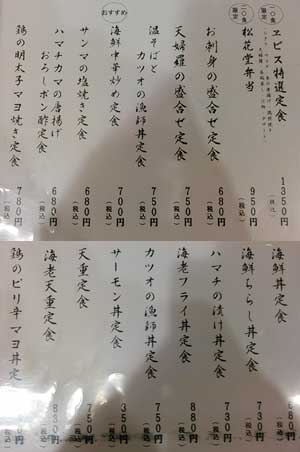 一〇食
限定
ヱビス特選定食
1350円
（税込）
一〇食
限定
松花堂弁当
950円
（税込）
お刺身の盛合せ定食
680円
（税込）
天婦羅の盛合せ定食
750円
（税込）
温そばと
カツオの漁師丼定食
750円
（税込）
おすすめ
海鮮中華炒め定食
700円
（税込）
サンマの塩焼き定食
680円
（税込）
ハマチカマの唐揚げ
おろしポン酢定食
680円
（税込）
鶏の明太子マヨ焼き定食
780円
（税込）
海鮮丼定食
680円
（税込）
海鮮ちらし丼定食
730円
（税込）
ハマチの漬け丼定食
730円
（税込）
海老フライ丼定食
880円
（税込）
カツオの漁師丼定食
750円
（税込）
サーモン丼定食
350円
（税込）
天重定食
750円
（税込）
海老天重定食
830円
（税込）
鶏のピリ辛マヨ丼定
（税込）